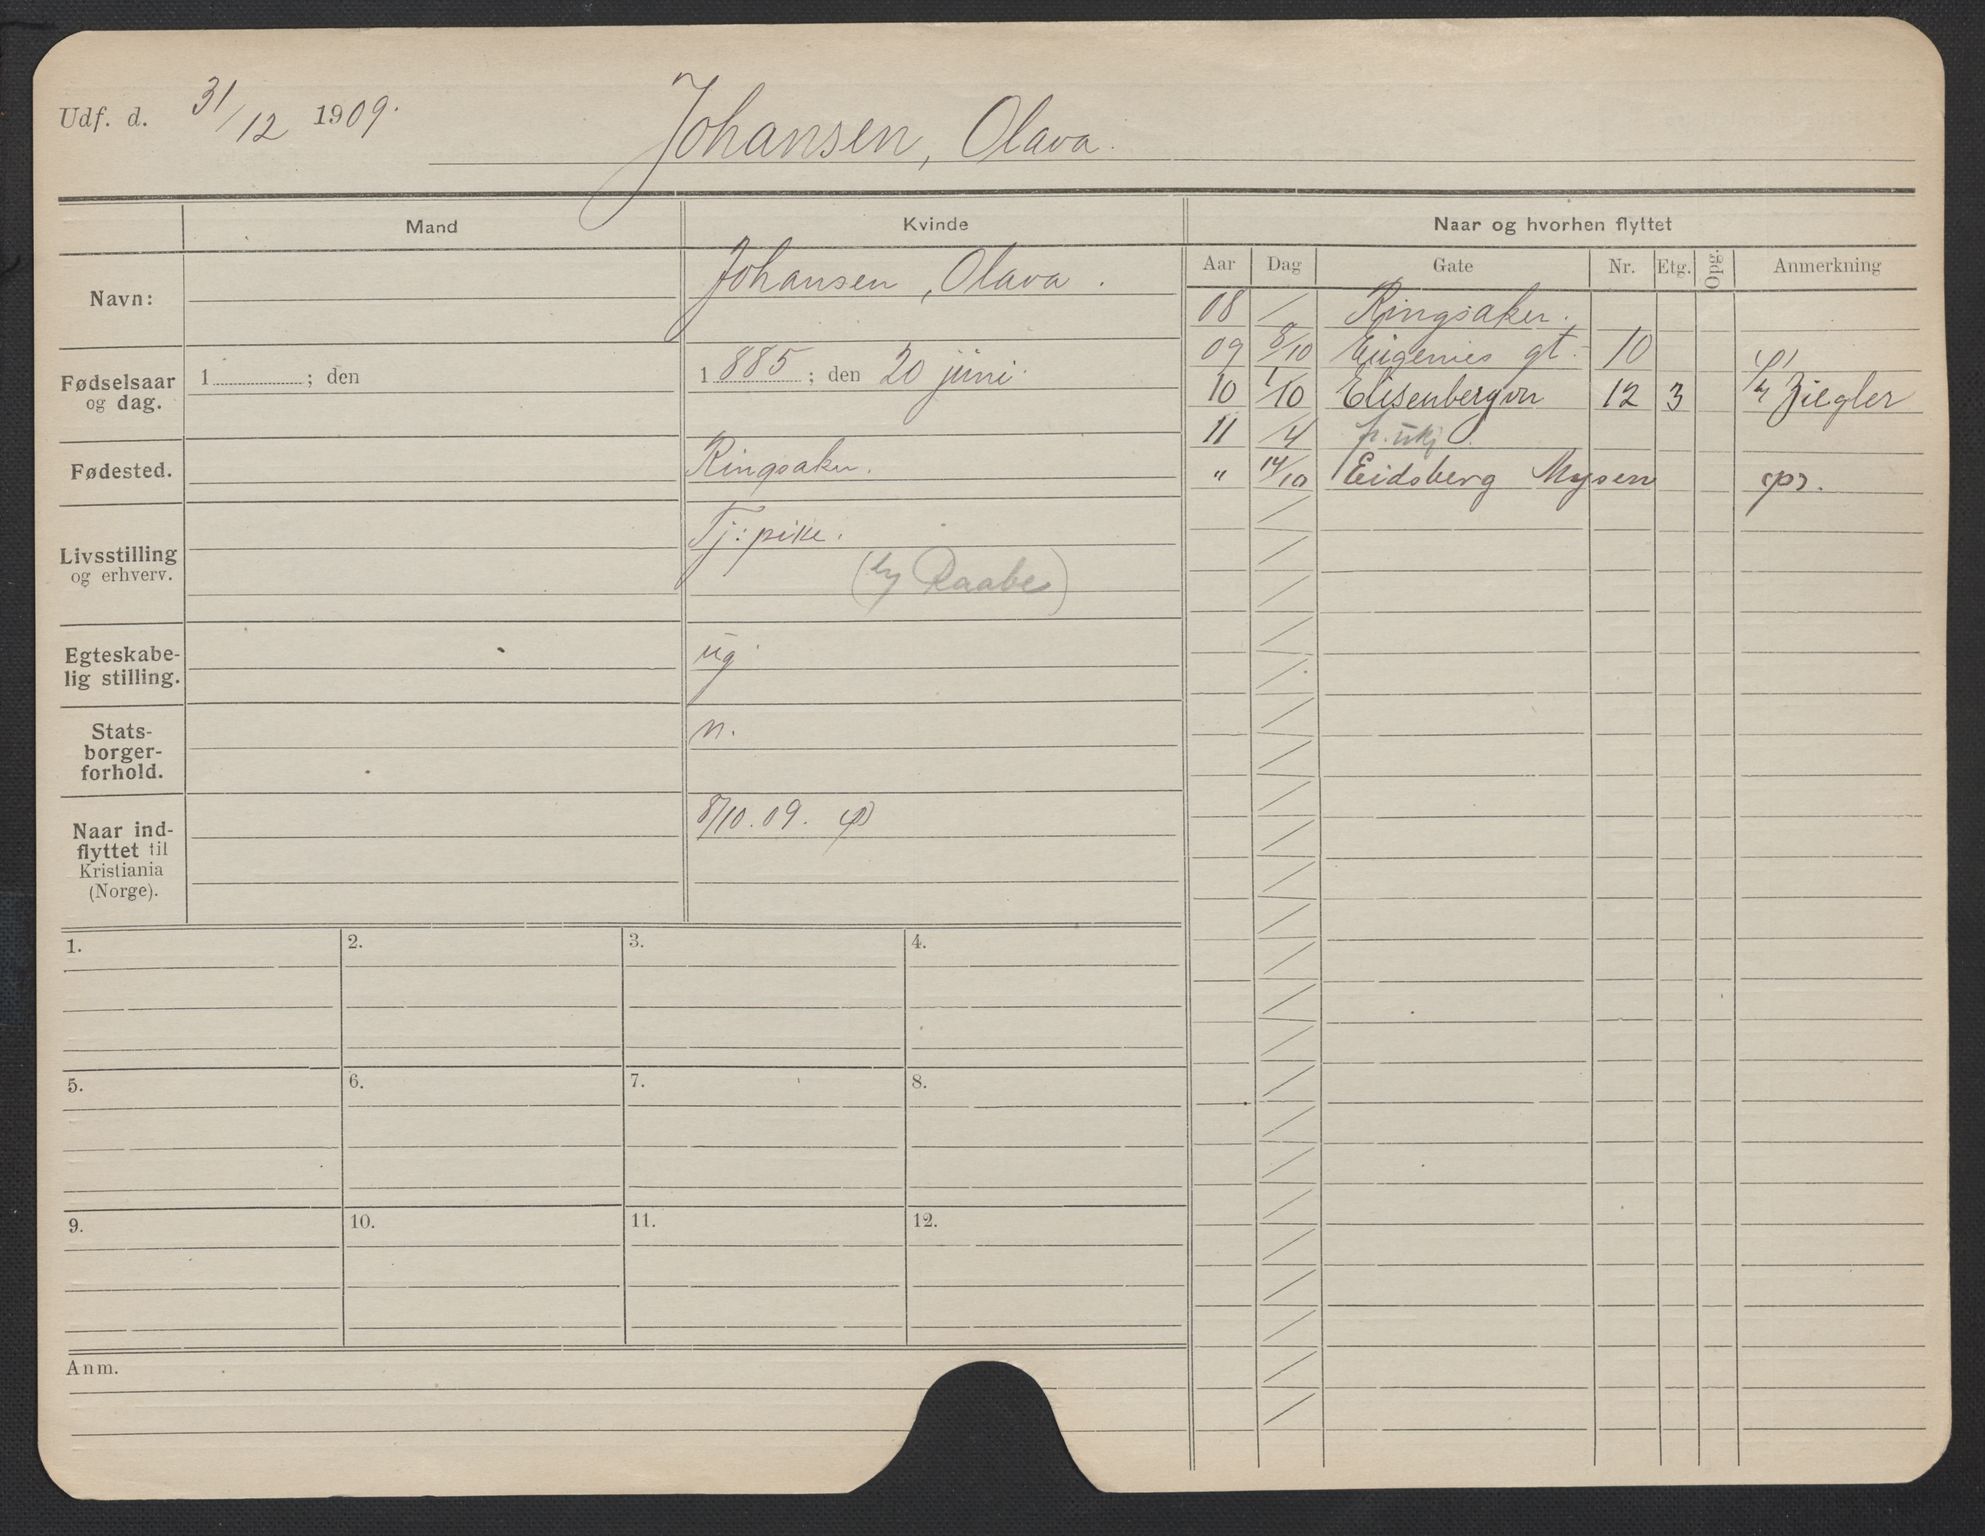 Udf. d. 31/12 1909.
Johansen, Olava.
Mand
Kvinde
Naar og hvorhen flyttet
Navn:
Johansen, Olava.
Fødselsaar og dag.
1 ; den
1885 ; den 20 juni
Fødested.
Ringsaker.
Livsstilling og erhverv.
Tj: pike.
(hj Raabe)
Egteskabe-
lig stilling.
ug
Stats-
borger-
forhold.
n.
Naar ind-
flyttet til
Kristiania
(Norge).
8/10. 09. ps
Aar Dag Gate Nr. Etg. Opg. Anmerkning
08 / Ringsaker.
09 8/10 Eugenies gt. 10
10 1/10 Elisenbergvn 12 3 Ziegler
11 /4 fr. ukj.
" 14/10 Eidsberg Mysen ps.
1. 2. 3. 4.
5. 6. 7. 8.
9. 10. 11. 12.
Anm.